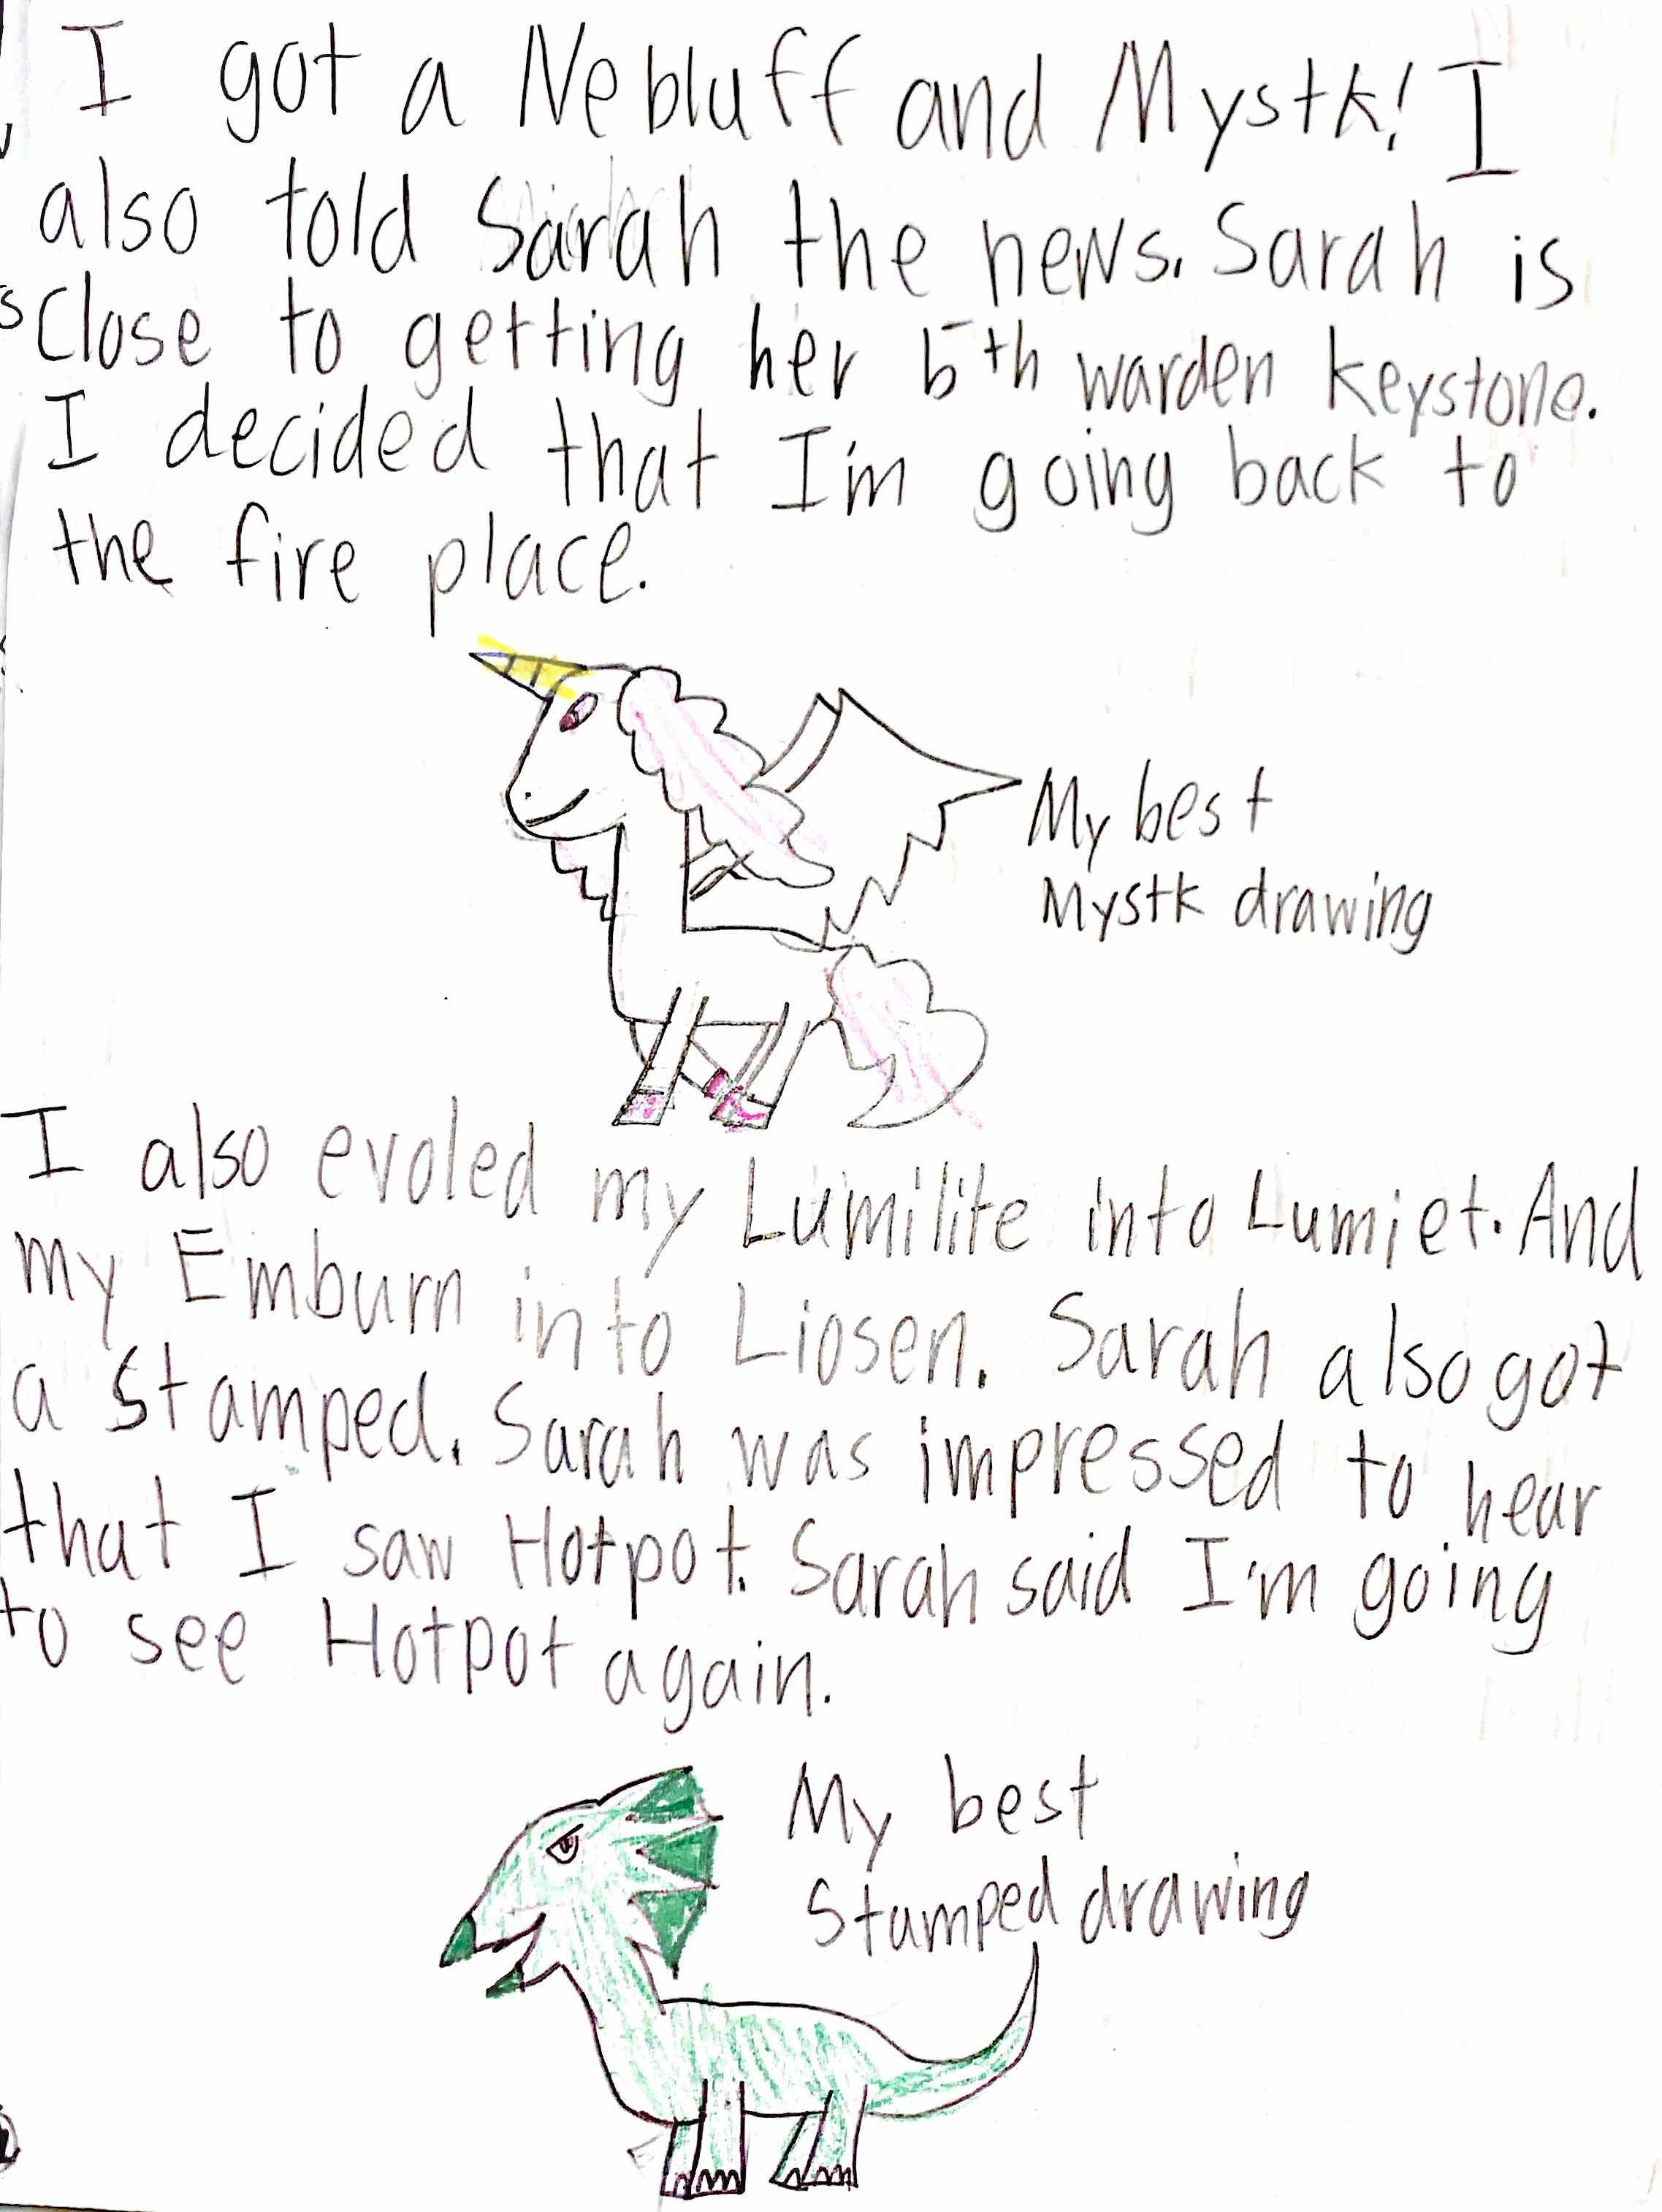 I got a Nebluff and Mystk! I
also told Sarah the news. Sarah is
close to getting her 5th warden keystone.
I decided that I'm going back to
the fire place.
My best
Mystk drawing
I also evoled my Lumilite into Lumiet. And
my Emburn into Liosen. Sarah also got
a Stamped. Sarah was impressed to hear
that I saw Hotpot. Sarah said I'm going
to see Hotpot again.
My best
Stamped drawing